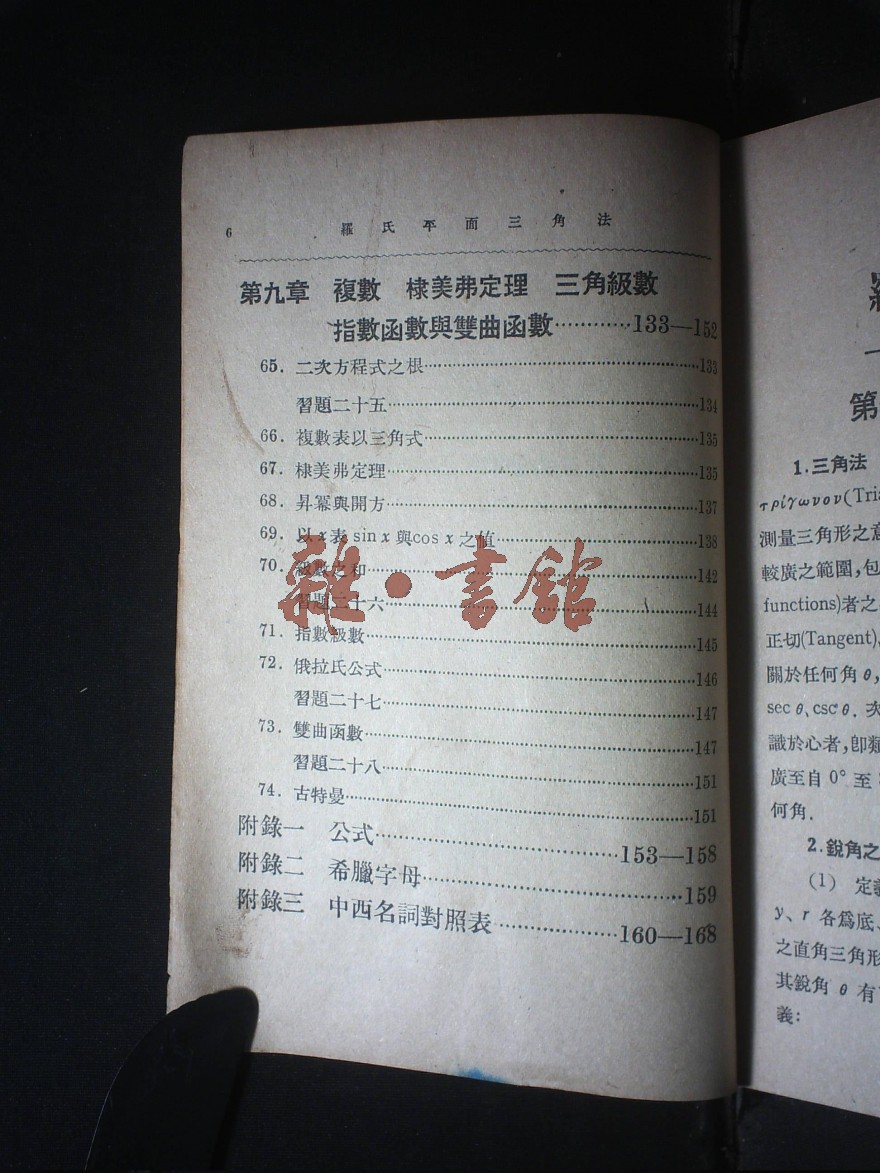 6 羅氏平面三角法
第九章 複數 棣美弗定理 三角級數
指數函數與雙曲函數…………133—152
65. 二次方程式之根……133
習題二十五……134
66. 複數表以三角式……135
67. 棣美弗定理……135
68. 昇冪與開方……137
69. 以x表 sin x 與cos x 之值……138
70. 級數之和……142
習題二十六……144
71. 指數級數……145
72. 俄拉氏公式……146
習題二十七……147
73. 雙曲函數……147
習題二十八……151
74. 古特曼……151
附錄一 公式……153—158
附錄二 希臘字母……159
附錄三 中西名詞對照表……160—168
雜·書館
第
1.三角法
τρίγωνον(Tria
測量三角形之意
較廣之範圍,包
functions)者之
正切(Tangent)、
關於任何角 θ,
sec θ、csc θ. 次
識於心者,卽類
廣至自 0° 至
何角.
2.銳角之
(1) 定義
y、r 各爲底、
之直角三角形
其銳角 θ 有
義: